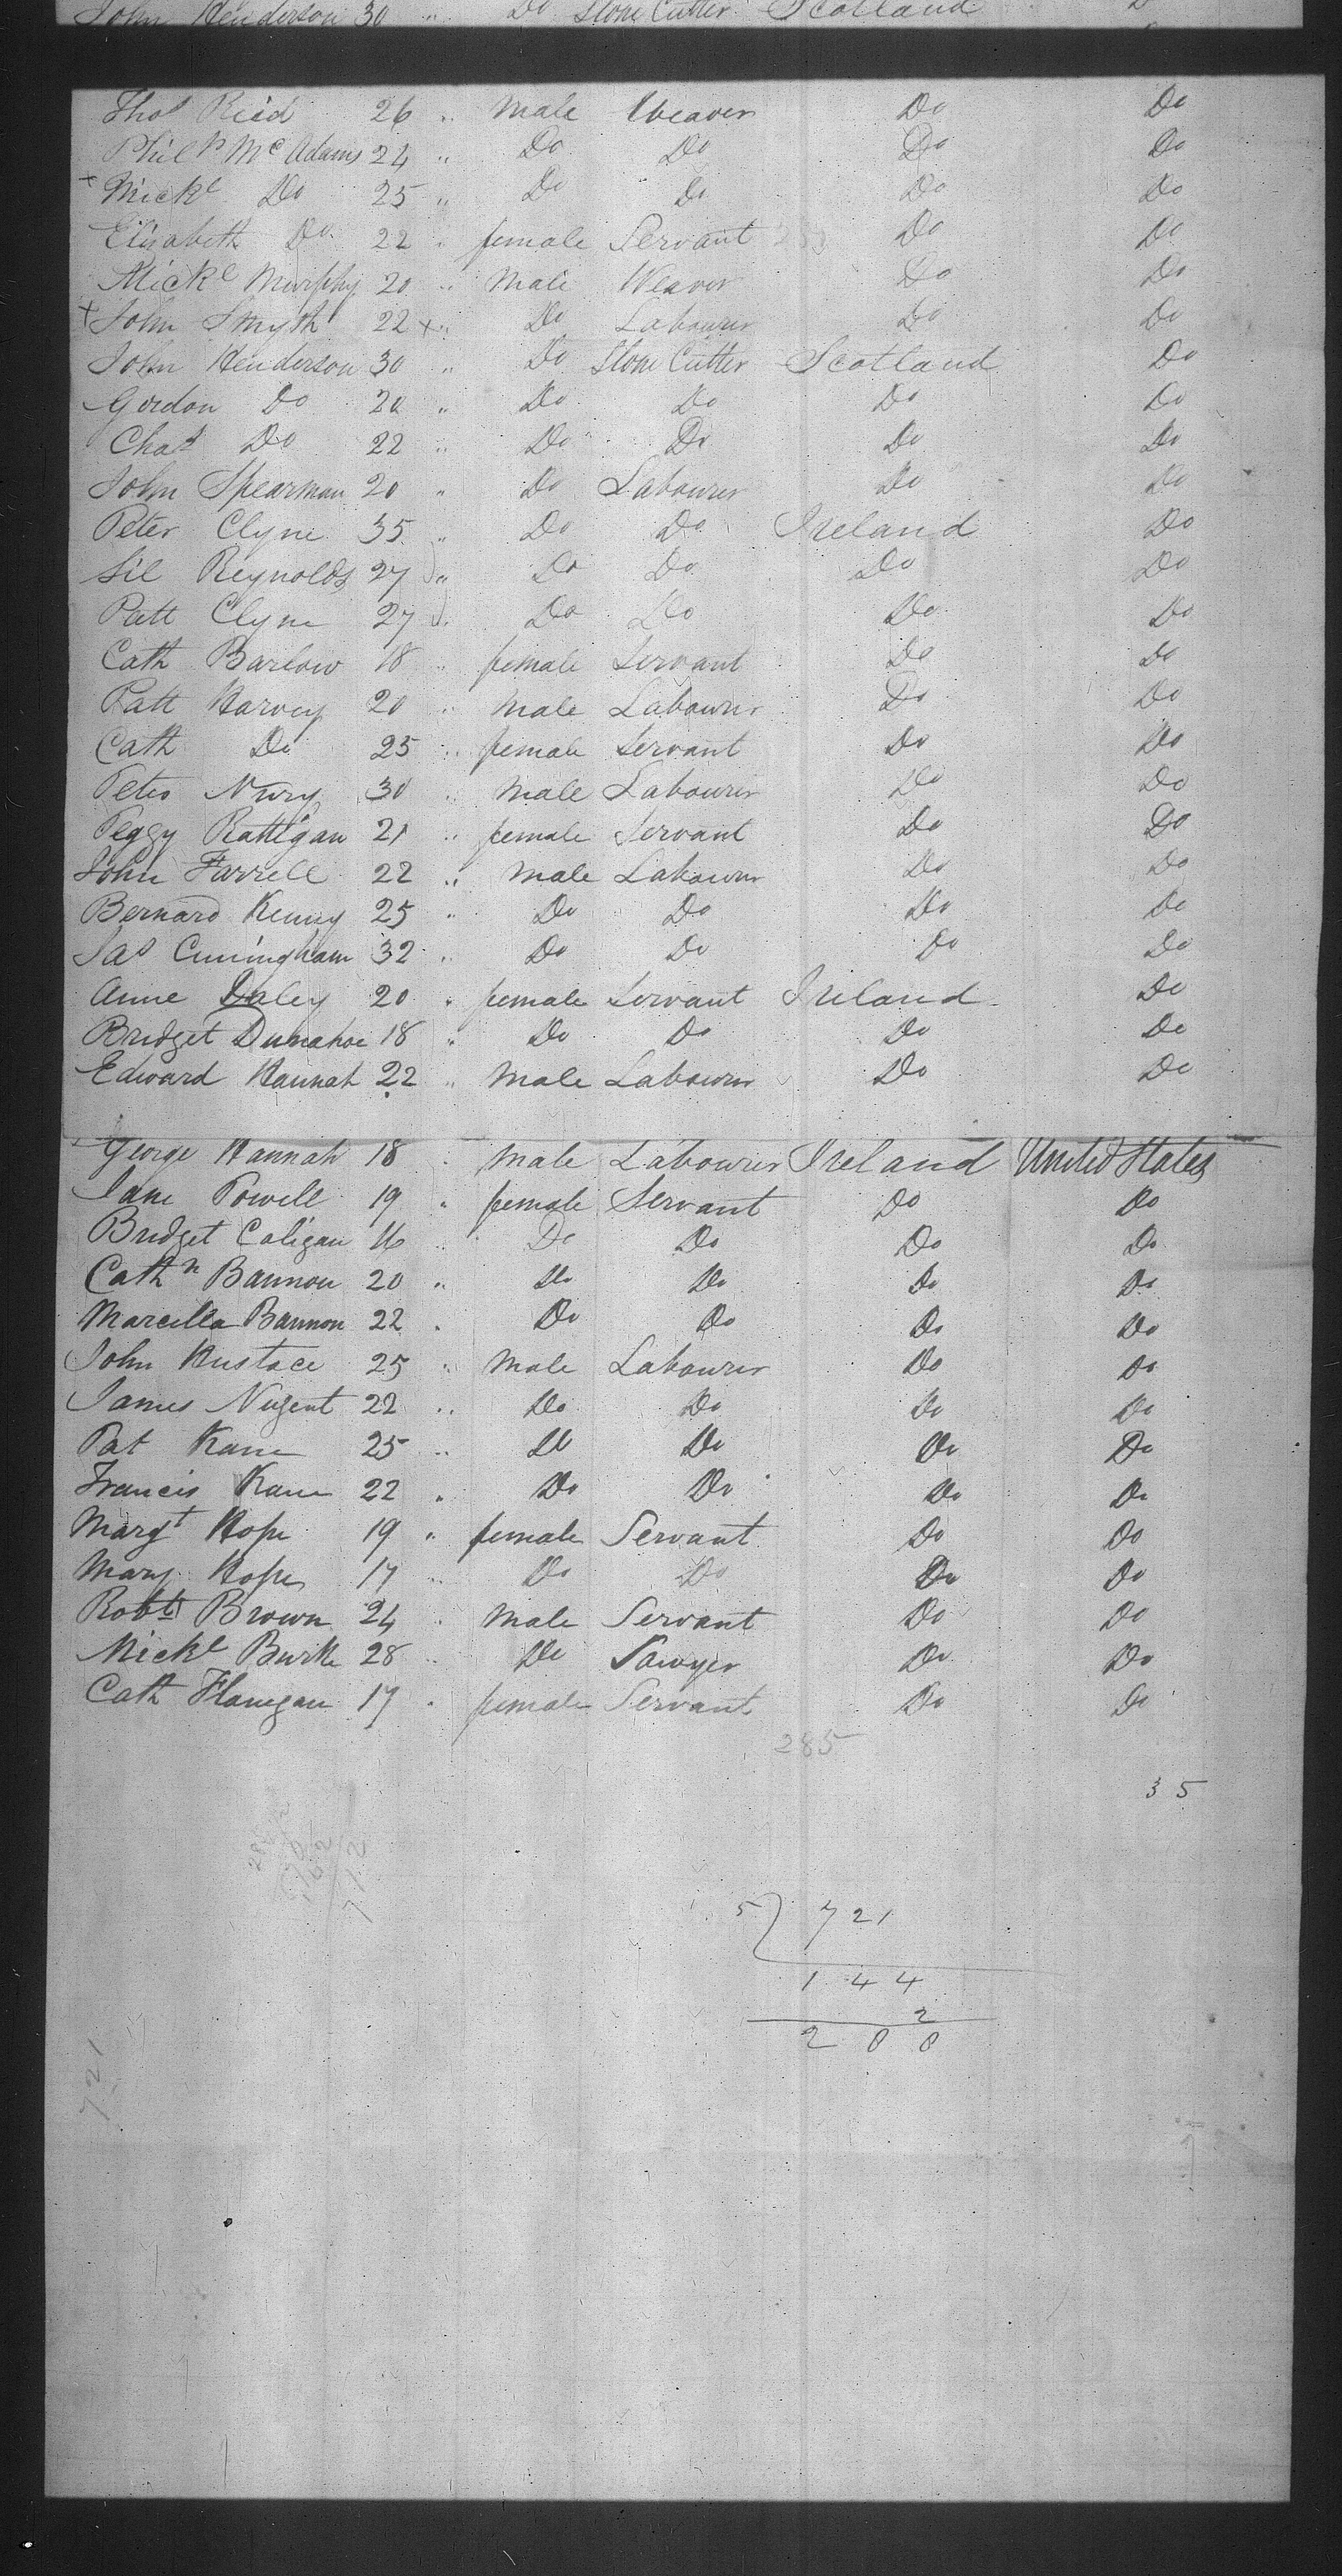 John Henderson 30 " Do Stone Cutter Scotland
Thos Reid 26 " Male Weaver Do Do
Philp McAdams 24 " Do Do Do Do
+ Mickl Do 25 " Do Do Do Do
Elisabeth Do 22 " female Servant Do Do
Mickl Murphy 20 " Male Weaver Do Do
+ John Smyth 22 + " Do Labourer Do Do
John Henderson 30 " Do Stone Cutter Scotland Do
Gordon Do 20 " Do Do Do Do
Chas Do 22 " Do Do Do Do
John Spearman 20 " Do Labourer Do Do
Peter Clyne 35 " Do Do Ireland Do
Sil Reynolds 27 " Do Do Do Do
Patt Clyne 27 " Do Do Do Do
Cath Barlow 18 " female Servant Do Do
Patt Harvey 20 " Male Labourer Do Do
Cath Do 25 " female Servant Do Do
Peter 30 " Male Labourer Do Do
Peggy Rattigan 21 " female Servant Do Do
John Farrell 22 " Male Labourer Do Do
Bernard Kenny 25 " Do Do Do Do
Jas Cuningham 32 " Do Do Do Do
Anne Daley 20 " female Servant Ireland Do
Bridget Dunahoe 18 " Do Do Do Do
Edward Hannah 22 " Male Labourer Do Do
George Hannah 18 " Male Labourer Ireland United States
Jane Powell 19 " female Servant Do Do
Bridget Caligan 16 " Do Do Do Do
Cathn Bannon 20 " Do Do Do Do
Marcella Bannon 22 " Do Do Do Do
John Eustace 25 " Male Labourer Do Do
James Nugent 22 " Do Do Do Do
Pat Kane 25 " Do Do Do Do
Francis Kane 22 " Do Do Do Do
Margt Hope 19 " female Servant Do Do
Mary Hope 17 " Do Do Do Do
Robt Brown 24 " Male Servant Do Do
Mickl Burke 28 " Do Sawyer Do Do
Cath Flanegan 17 " female Servant Do Do
285
35
5) 721
144
2
288
721